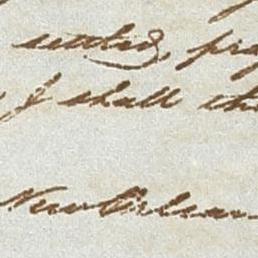 settled, pra
I shall
New Orlean